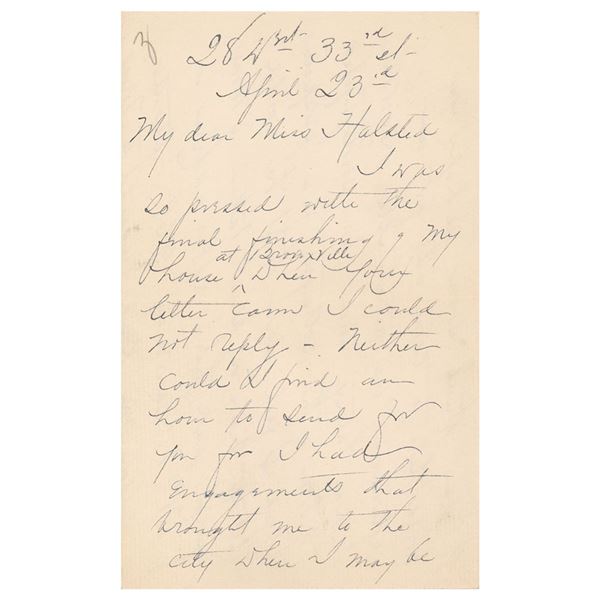 28 West 33rd st-
April 23rd
My dear Miss Halsted
I was
so pressed with the
final finishing of my
at Bronxville
house when your
letter came I could
not reply – Neither
could I find an
hour to send for
you for I had
engagements that
brought me to the
city when I may be